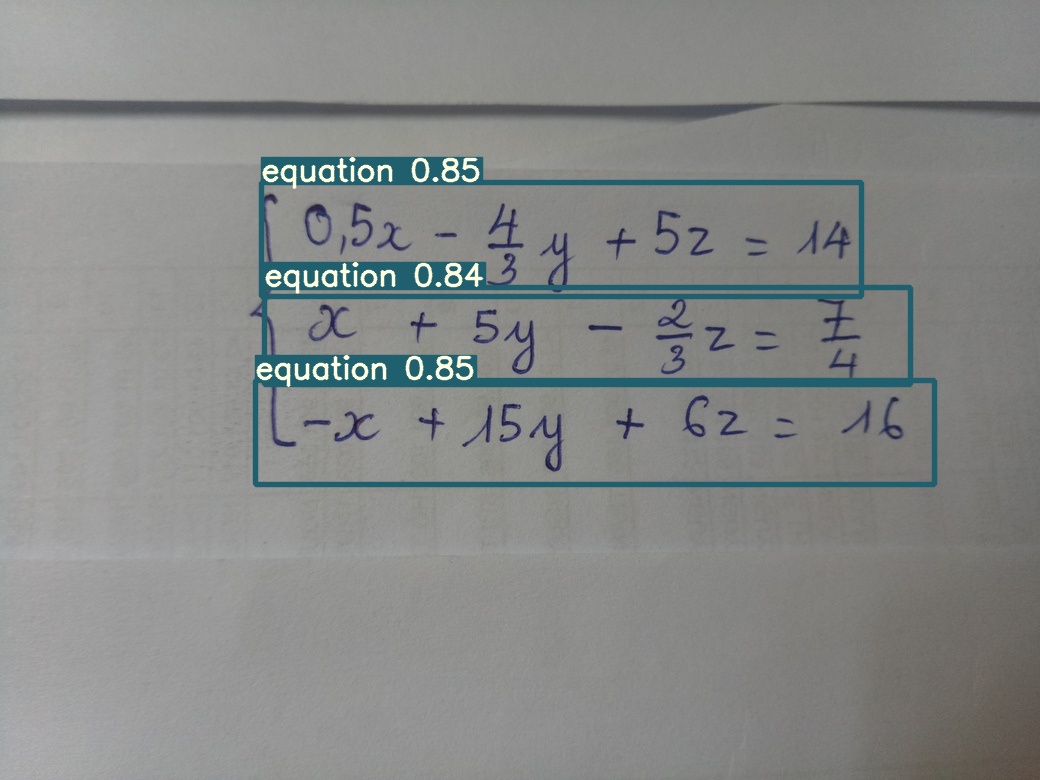 equation 0.85
0,5x - 4/3 y + 5z = 14
equation 0.84
x + 5y - 2/3 z = 7/4
equation 0.85
-x + 15y + 6z = 16